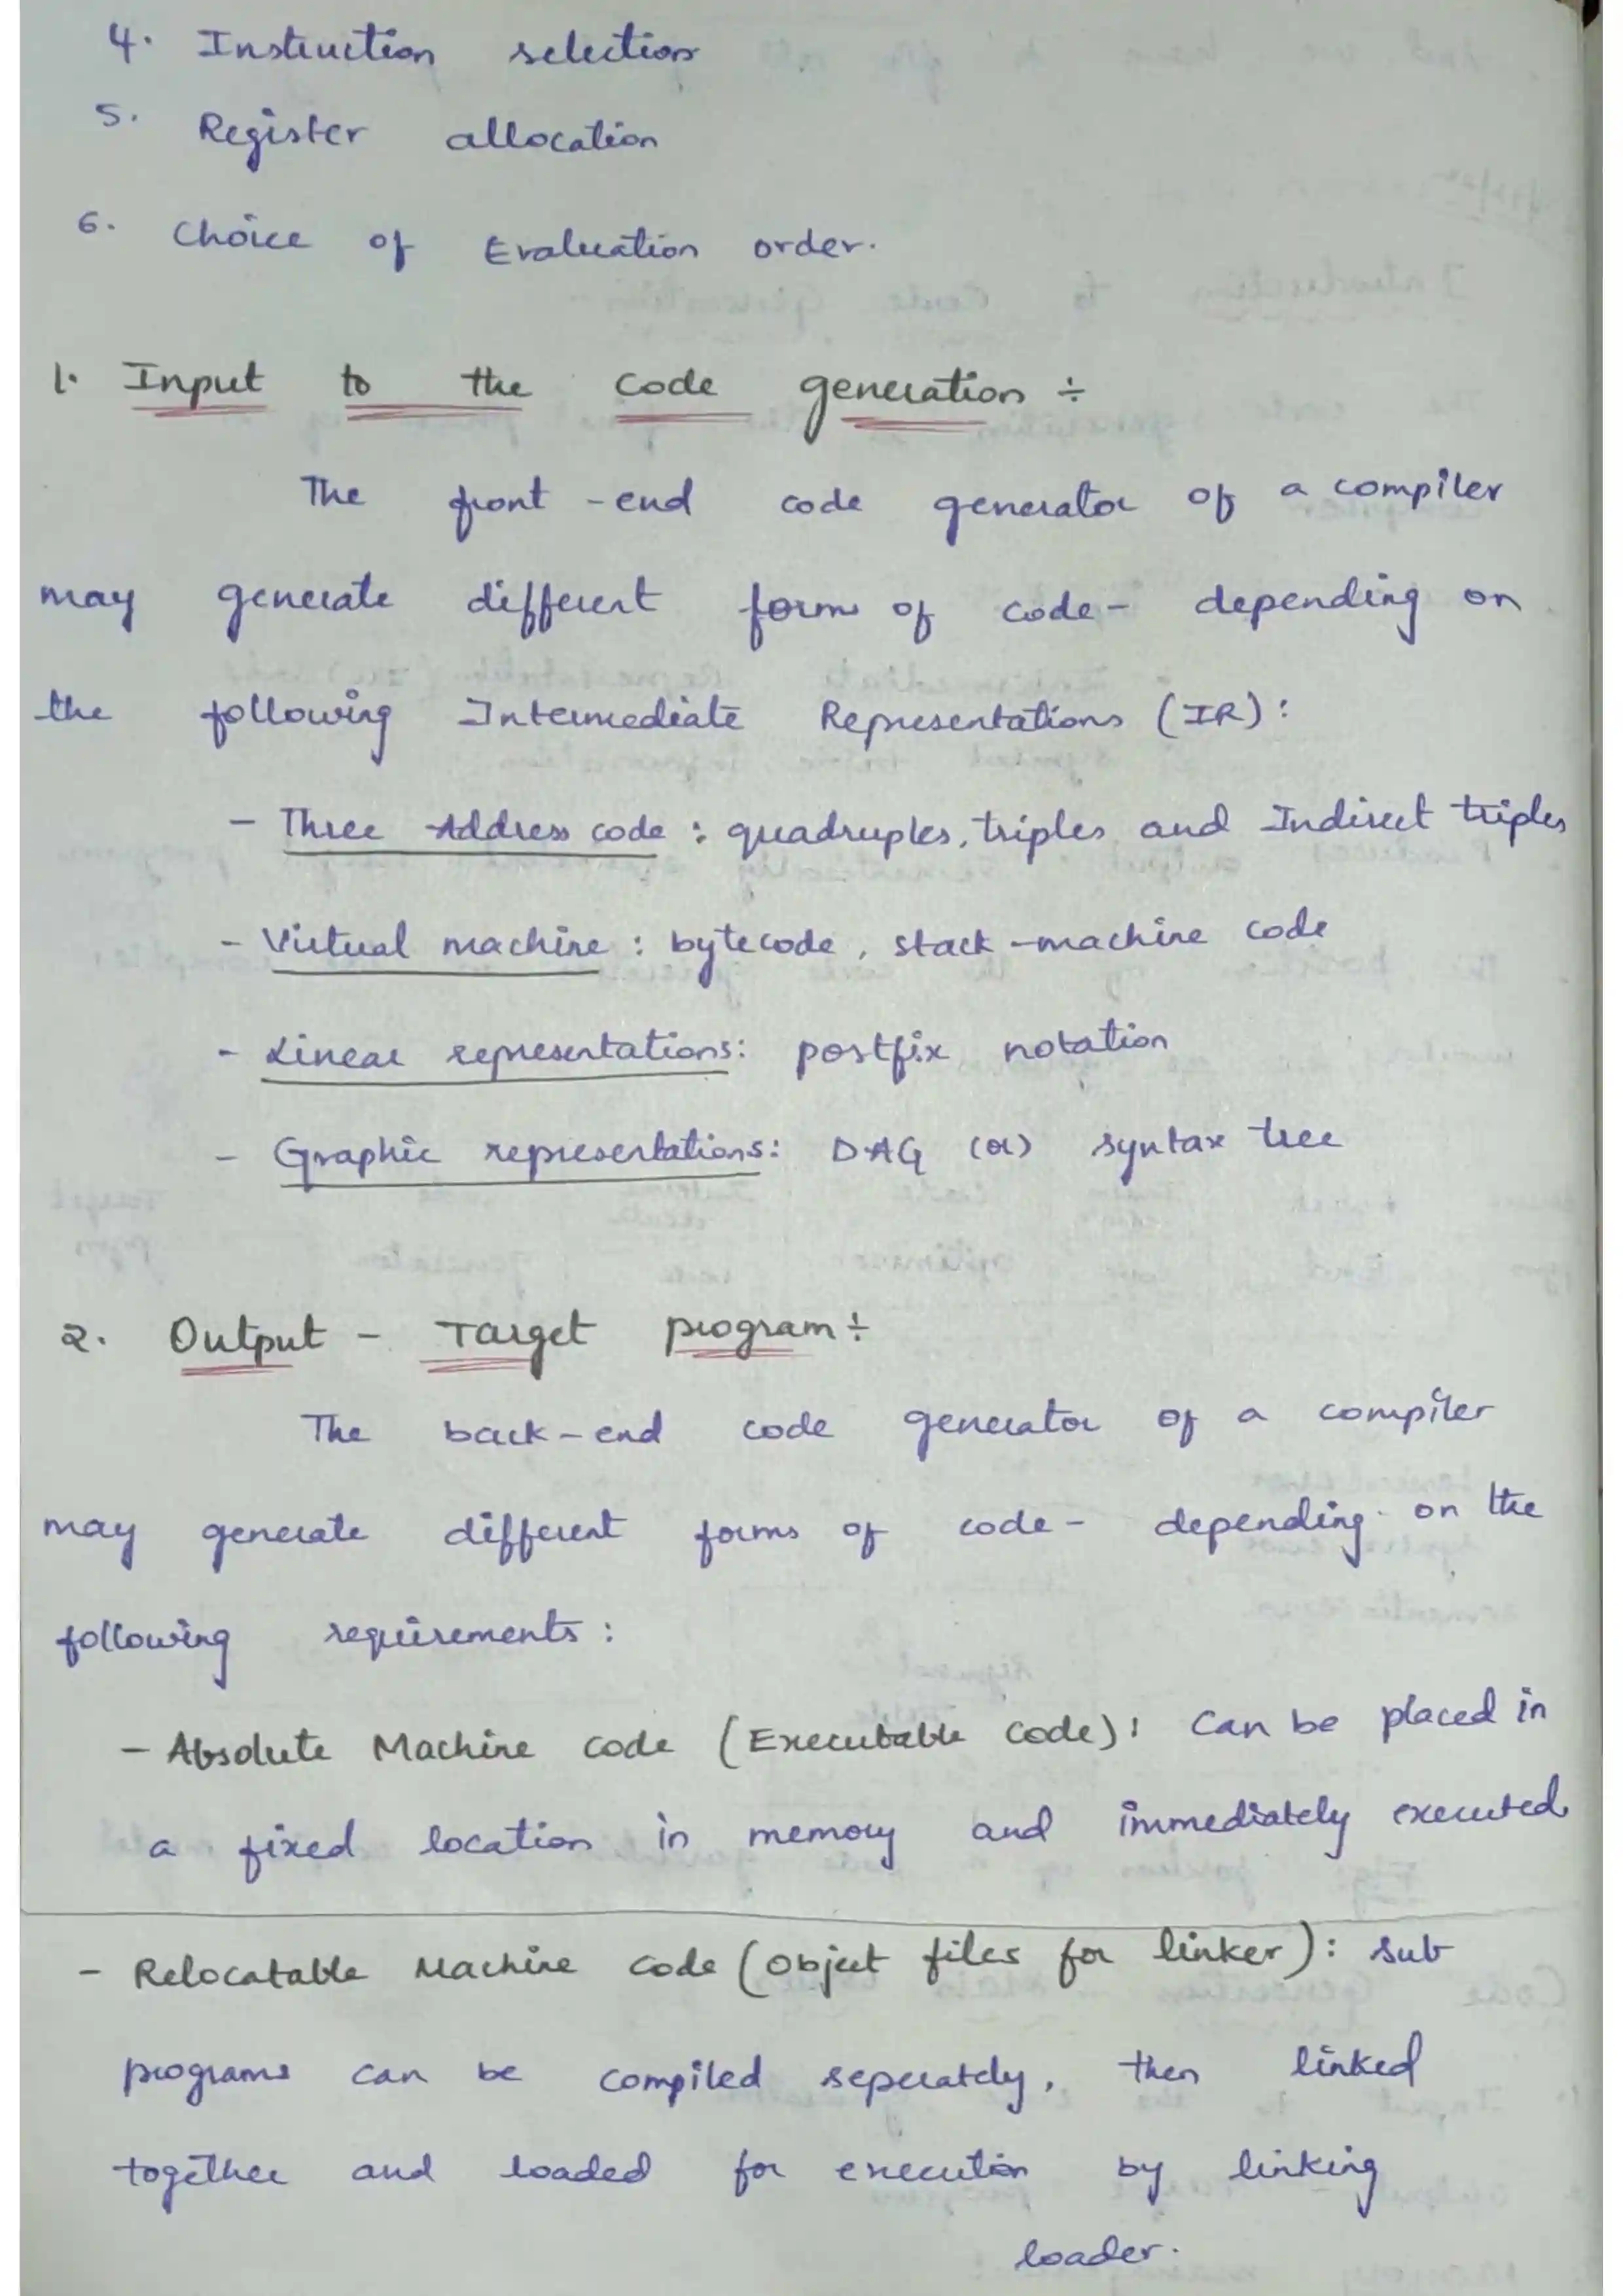 4. Instruction selection
5. Register allocation
6. Choice of Evaluation order.
1. Input to the code generation ÷
The front-end code generator of a compiler
may generate different forms of code - depending on
the following Intermediate Representations (IR):
- Three Address code : quadruples, triples and Indirect triples
- Virtual machine : bytecode, stack-machine code
- Linear representations: postfix notation
- Graphic representations: DAG (or) syntax tree
2. Output - Target program ÷
The back-end code generator of a compiler
may generate different forms of code - depending on the
following requirements :
- Absolute Machine code (Executable code): Can be placed in
a fixed location in memory and immediately executed.
- Relocatable Machine code (Object files for linker): Sub
programs can be compiled seperately, then linked
together and loaded for execution by linking
loader.